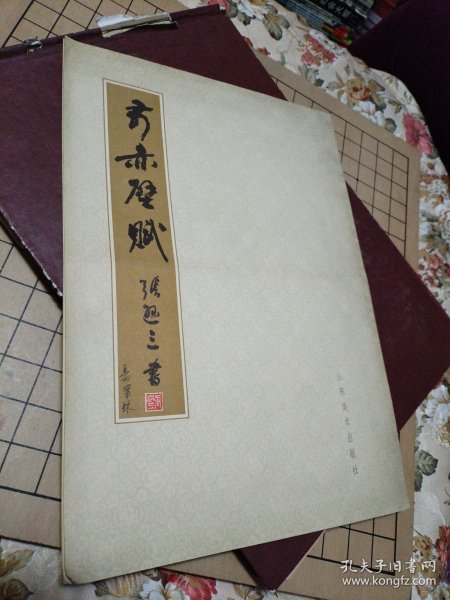 前赤壁赋
张登三书
山东美术出版社
孔夫子旧书网
www.kongfz.com